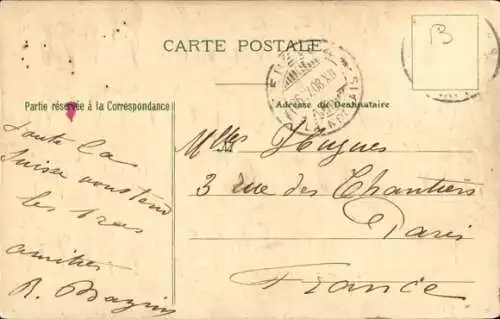 CARTE POSTALE
B
Partie réservée à la Correspondance
Adresse du Destinataire
toute la
Suisse vous tend
les bras
amitiés
R. Bazin
Mlles Hugues
3 rue des Chantiers
Paris
France